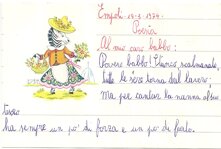 Empoli 19-3-1974.
Poesia
Al mio caro babbo:
Povero babbo! Stanco, scalmanato,
tutte le sere torna dal lavoro;
Ma per cantar la nanna al suo
tesoro
ha sempre un po' di forza e un po' di fiato.